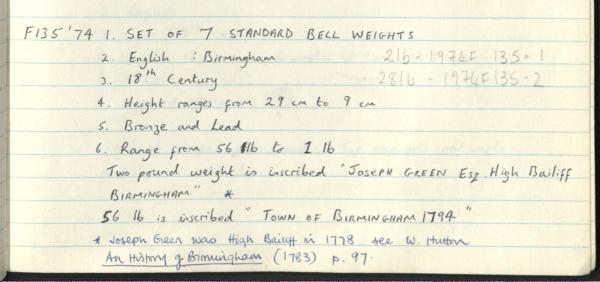 F135 '74 1. SET OF 7 STANDARD BELL WEIGHTS
2. English : Birmingham 2lb - 1974F 135.1
3. 18th Century 28lb - 1974F 135.2
4. Height ranges from 29 cm to 9 cm
5. Bronze and Lead
6. Range from 56 lb to 1 lb
Two pound weight is inscribed "JOSEPH GREEN Esq. High Bailiff
BIRMINGHAM" *
56 lb is inscribed "TOWN OF BIRMINGHAM 1794"
* Joseph Green was High Bailiff in 1778 see W. Hutton
An History of Birmingham (1783) p. 97.